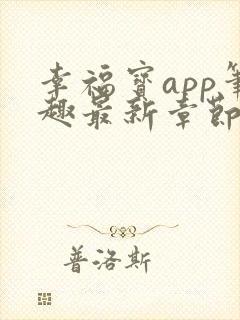 幸福宝app笔
趣最新章节
普洛斯